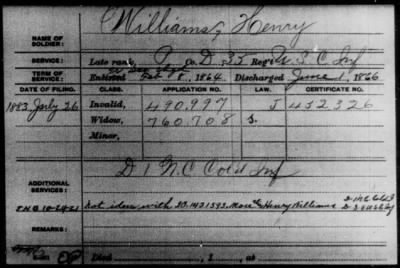 Williams, Henry
NAME OF SOLDIER:
SERVICE: Late rank, P Co. D, 35 Reg't U S C Inf
TERM OF SERVICE: Enlisted Feb 8, 1864. Discharged June 1, 1866
DATE OF FILING. CLASS. APPLICATION NO. LAW. CERTIFICATE NO.
1883 July 26 Invalid, 490,997 J 452326
Widow, 760,708 S.
Minor,
D 1 N.C. Col'd Inf
ADDITIONAL SERVICES:
not iden with Henry Williams
REMARKS:
Died , 1 , at